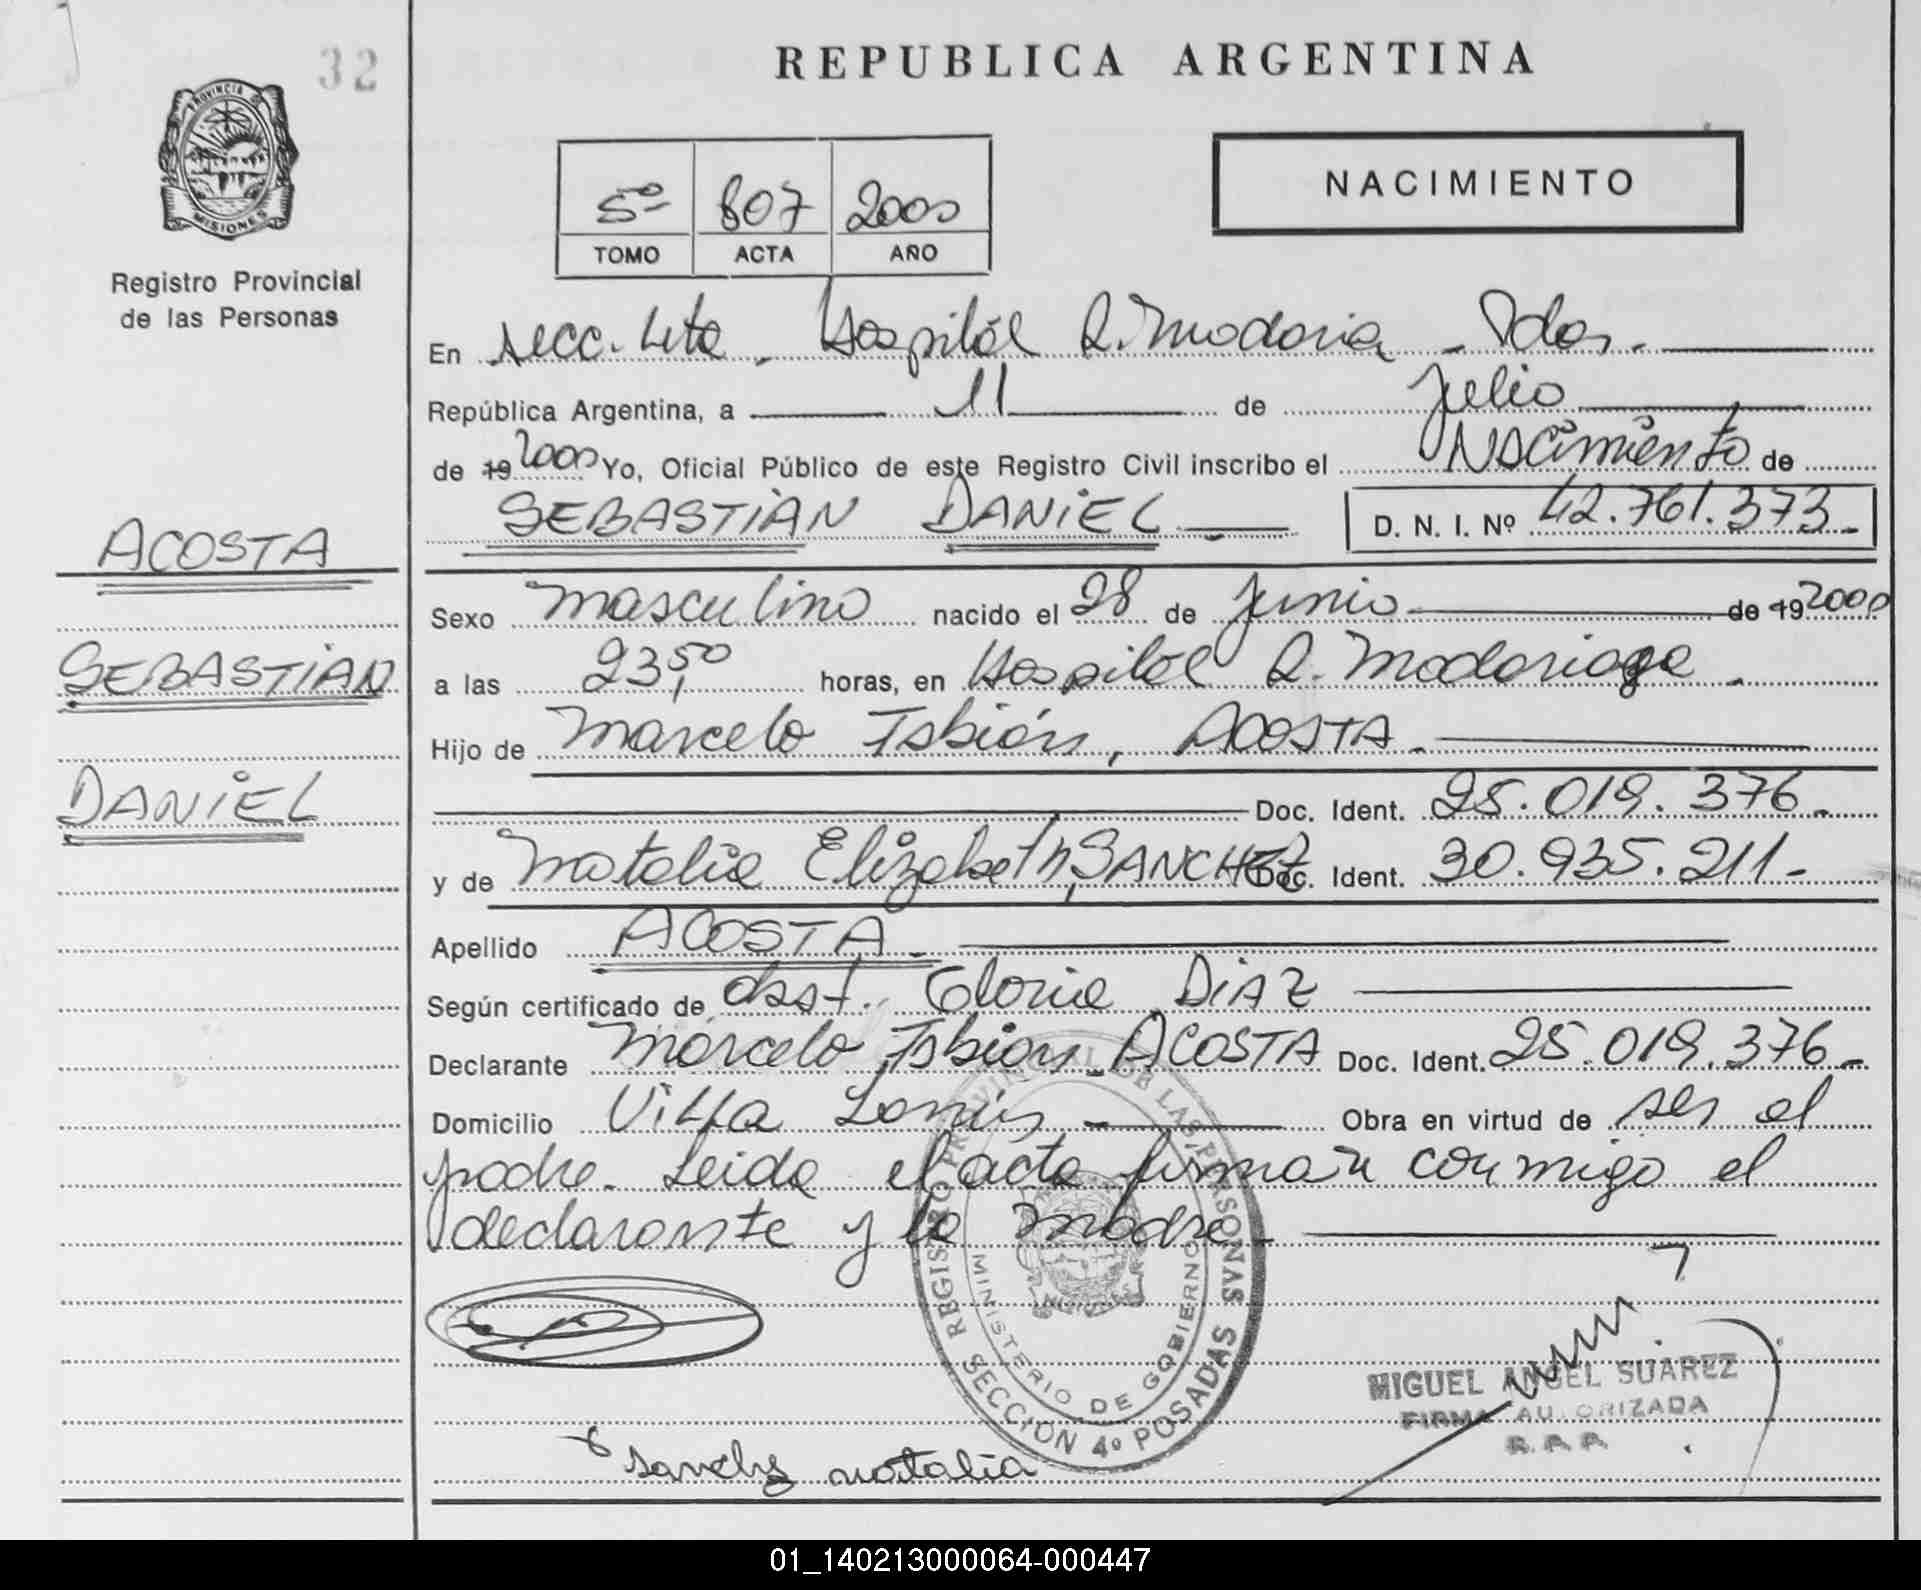 32
REPUBLICA ARGENTINA
PROVINCIA DE
MISIONES
Registro Provincial
de las Personas
5º 807 2000
TOMO ACTA AÑO
NACIMIENTO
En secc. 4ta. Hospital R. Madaria - Pdas.
República Argentina, a 11 de Julio
de 19 2000 Yo, Oficial Público de este Registro Civil inscribo el Nacimiento de
SEBASTIAN DANIEL
D. N. I. Nº 42.761.373.-
ACOSTA
SEBASTIAN
DANIEL
Sexo masculino nacido el 28 de Junio de 19 2000
a las 23,50 horas, en Hospital R. Madariaga.
Hijo de Marcelo Fabián, ACOSTA.
Doc. Ident. 25.019.376.-
y de Natalia Elizabeth, SANCHEZ Doc. Ident. 30.935.211.-
Apellido ACOSTA.-
Según certificado de obst. Gloria DIAZ
Declarante Marcelo Fabián ACOSTA Doc. Ident. 25.019.376.-
Domicilio Villa Lanús - Obra en virtud de ser el
padre. Leida el acta firman conmigo el
declarante y la madre
REGISTRO PROVINCIAL DE LAS PERSONAS
MINISTERIO DE GOBIERNO
SECCION 4º POSADAS
MIGUEL ANGEL SUAREZ
FIRMA AUTORIZADA
R. P. P.
Sanchez natalia
01_140213000064-000447